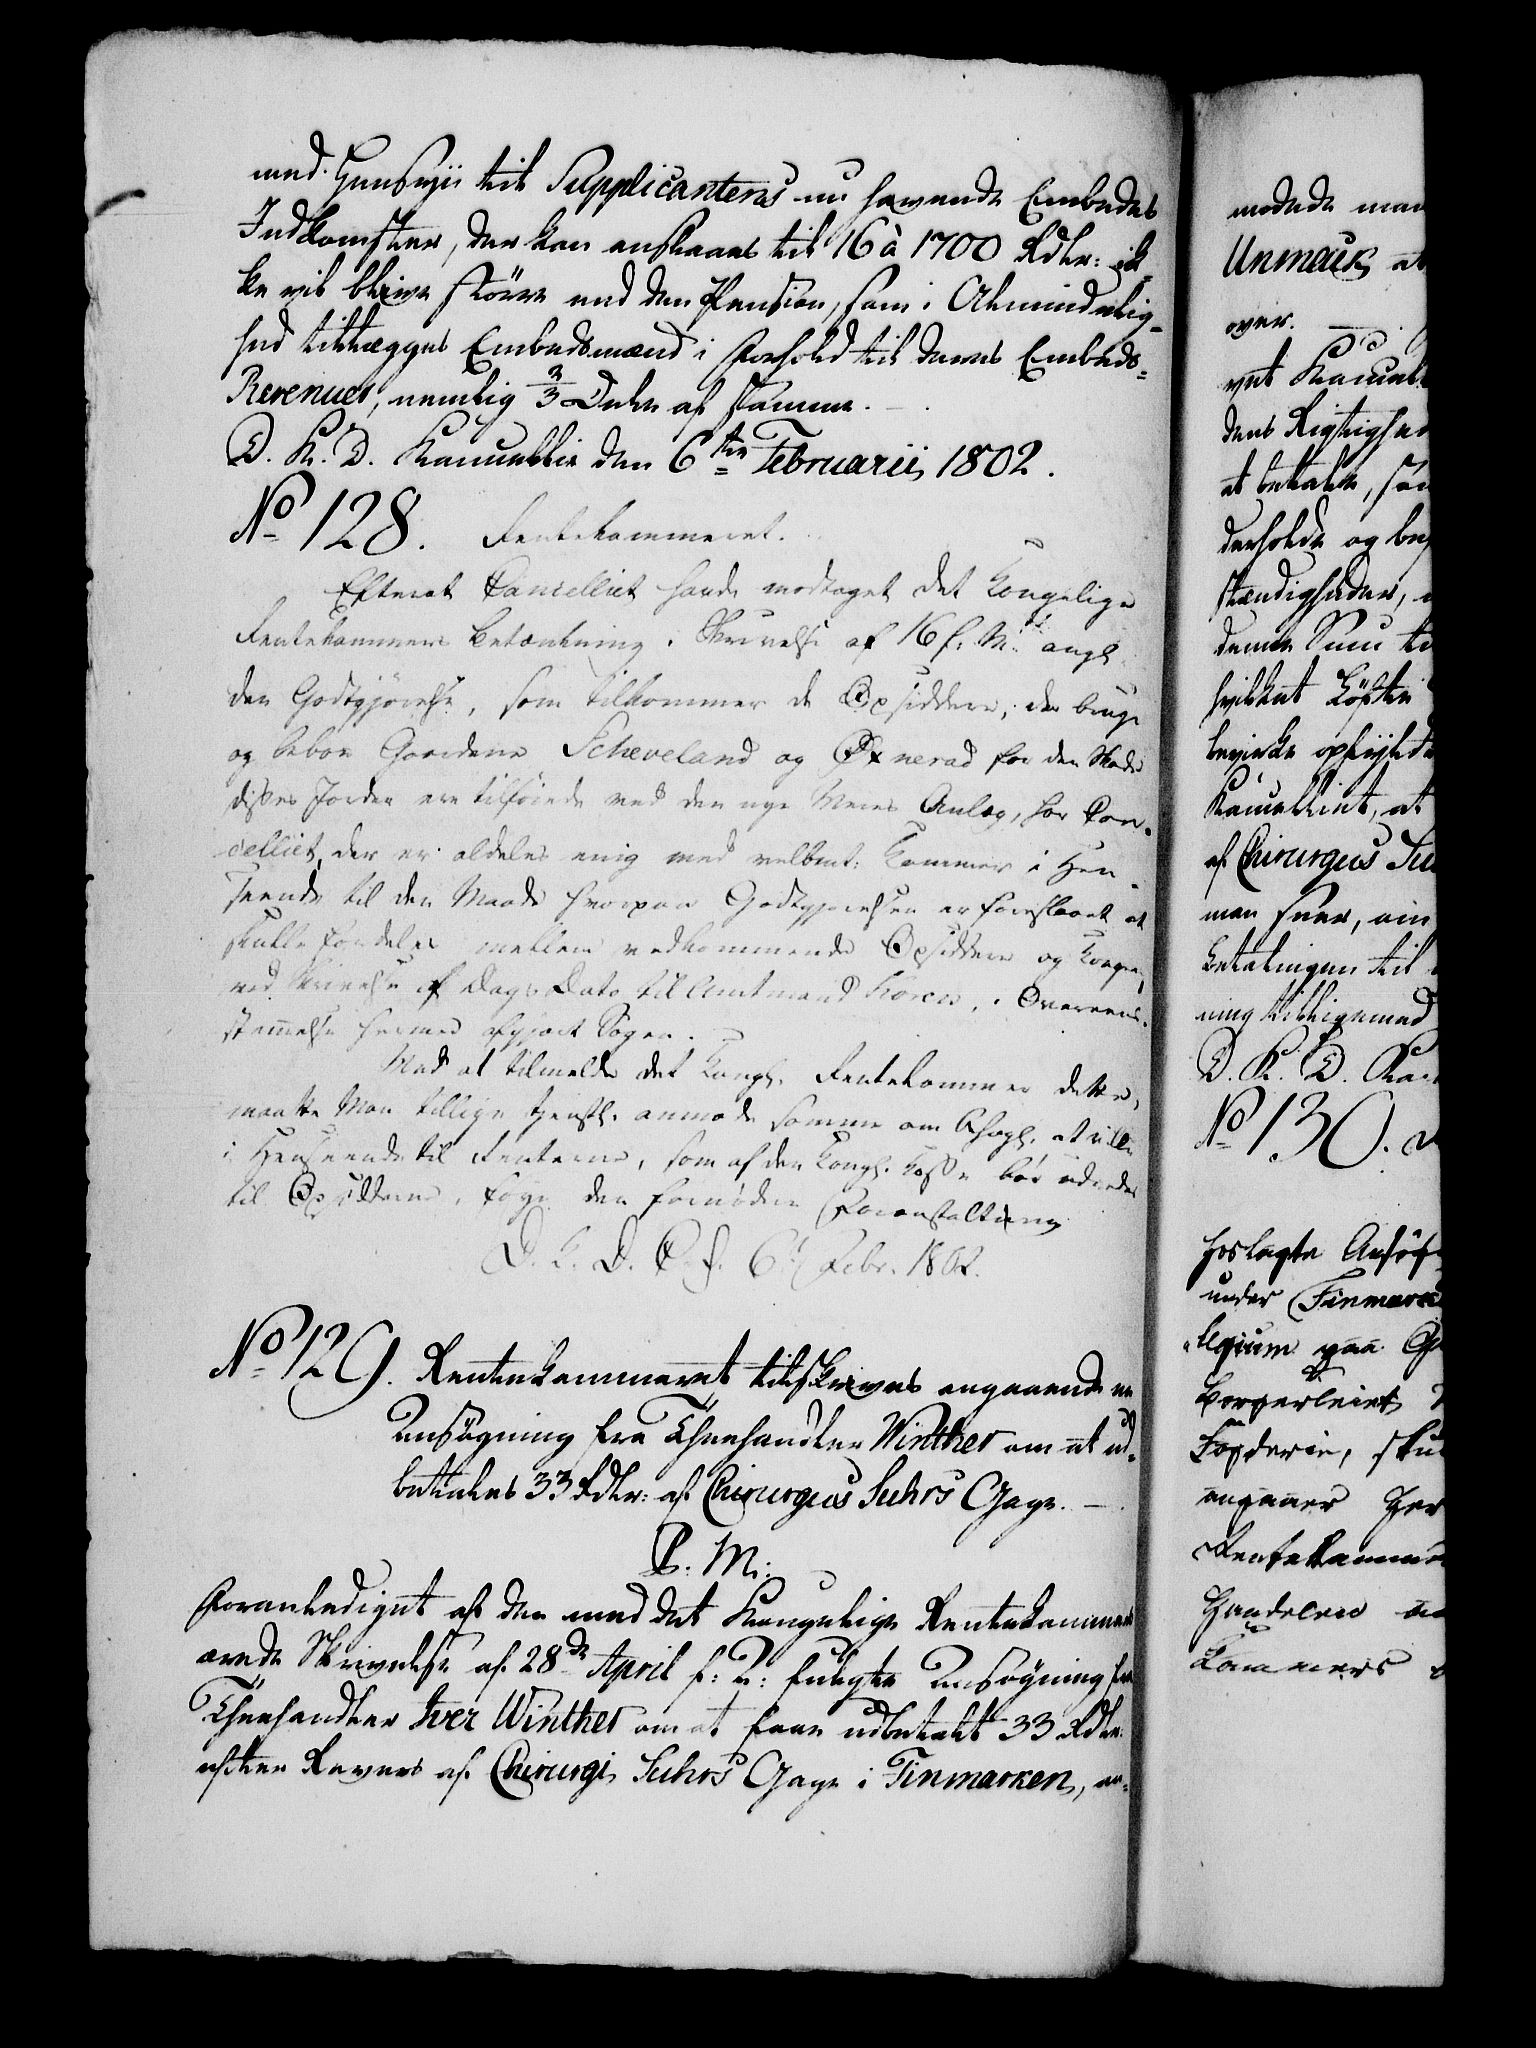 med Hensyn til Supplicantens nu havende Embedes
Indkomster, der kan anslaaes til 16 à 1700 Rdlr: ik-
ke vil blive större end den Pension, som i Almindelig-
hed tillægges Embedsmænd i Forhold til deres Embeds-
Revenuer, nemlig 2/3 Dele af samme. —.
D. K. D. Kancellie den 6te Februarii 1802.
No 128. Rentekammeret.
Efterat Cancelliet havde modtaget det Kongelige
Rentekammers Betænkning i Skrivelse af 16 f. M: angl.
den Godtgjörelse, som tilkommer de Opsiddere, der bruge
og beboe Gaardene Scheveland og Öxnerad for den Skade
disses Jorder ere tilföiede ved den nye Veies Anlæg, har Can-
celliet, der er aldeles enig med velbmt: Kammer i Hen-
seende til den Maade hvorpaa Godtgjörelsen er foreslaaet at
skulle fordeles mellem vedkommende Opsiddere og Kongen,
ved Skrivelse af Dags Dato til Amtmand Koren, i Overeens-
stemmelse hermed afgjort Sagen.
Ved at tilmelde det Kongl. Rentekammer dette,
maatte Man tillige tjenstl. anmode samme om behagl. at ville
i Henseende til Renterne, som af den Kongl. Kasse bör udredes
til Opsidderne, föye den fornödne Foranstaltning
D. K. D. C. d. 6t Febr. 1802.
No 129. Rentekammeret tilskrives angaaende en
Ansögning fra Theehandler Winther om at ud-
betales 33 Rdlr: af Chirurgus Suhrs Gage. —.
P. M:
Foranlediget af den med det Kongelige Rentekammers
ærede Skrivelse af 28de April f: A: fulgte Ansögning fra
Theehandler Iver Winther om at faae udbetalt 33 Rdlr:
efter Revers af Chirurgi Suhrs Gage i Finmarken, an-
modede man
Unmack at
over. —
vet Kancel
dens Rigtighed
at betale, saa
derholde og be
stændigheder,
denne Sum ti
hvilket Löfte
bevirke opfyldt
Kancelliet, at
af Chirurgus Su
man seer, ein
betalingen til
ning tilligemed
D. K. D. Kan
No 130.
hoslagte Ansög
under Finmark
legium paa
Fogderie, sku
angaaer
Rentekamme
Handelens
Kammers